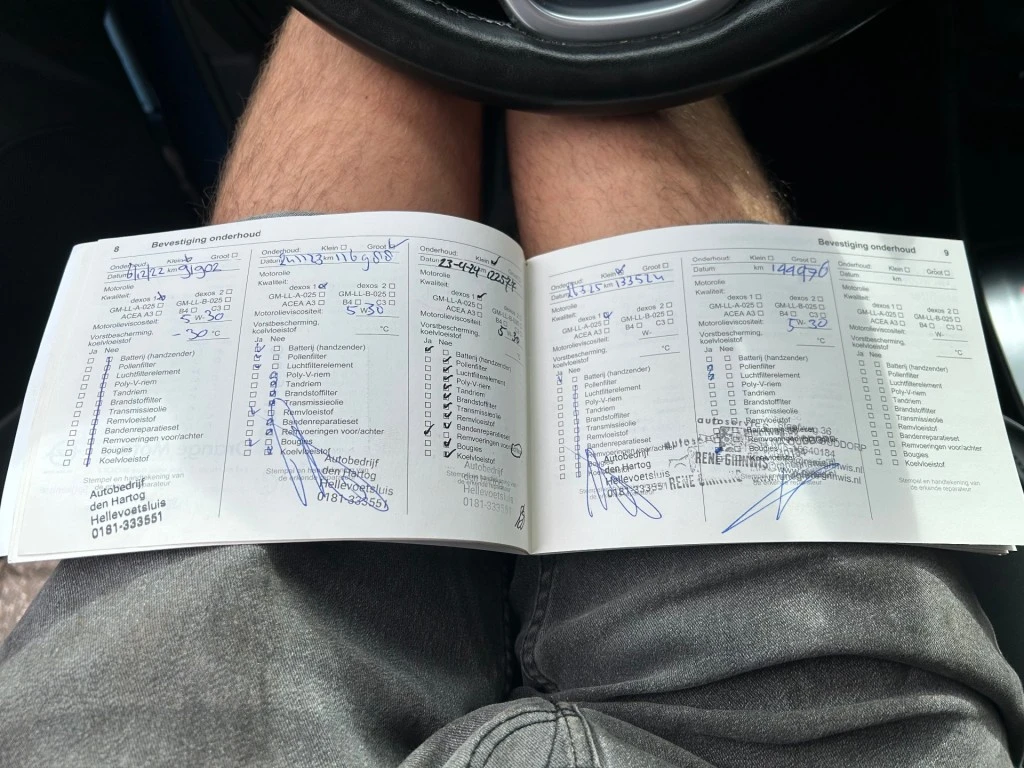 8 Bevestiging onderhoud
Onderhoud: Klein Groot
Datum 6/12/22 km 91902
Motorolie
Kwaliteit:
dexos 1 dexos 2
GM-LL-A-025 GM-LL-B-025
ACEA A3 B4 C3
Motorolieviscositeit 5 W 30
Vorstbescherming,
koelvloeistof 30 °C
Ja Nee
Batterij (handzender)
Pollenfilter
Luchtfilterelement
Poly-V-riem
Tandriem
Brandstoffilter
Transmissieolie
Remvloeistof
Bandenreparatieset
Remvoeringen voor/achter
Bougies
Koelvloeistof
Stempel en handtekening van
de erkende reparateur
Autobedrijf
den Hartog
Hellevoetsluis
0181-333551
Onderhoud: Klein Groot
Datum km
Motorolie
Kwaliteit:
dexos 1 dexos 2
GM-LL-A-025 GM-LL-B-025
ACEA A3 B4 C3
Motorolieviscositeit: 5 W 30
Vorstbescherming,
koelvloeistof °C
Ja Nee
Batterij (handzender)
Pollenfilter
Luchtfilterelement
Poly-V-riem
Tandriem
Brandstoffilter
Transmissieolie
Remvloeistof
Bandenreparatieset
Remvoeringen voor/achter
Bougies
Koelvloeistof
Autobedrijf
den Hartog
Hellevoetsluis
0181-333551
Onderhoud: Klein
Datum 23-4-24
Motorolie
Kwaliteit:
dexos 1
GM-LL-A-025
ACEA A3
Motorolieviscositeit
5-30
Vorstbescherming,
koelvloeistof
Ja Nee
Batterij (handzender)
Pollenfilter
Luchtfilterelement
Poly-V-riem
Tandriem
Brandstoffilter
Transmissieolie
Remvloeistof
Bandenreparatieset
Remvoeringen
Bougies
Koelvloeistof
Autobedrijf
den Hartog
Hellevoetsluis
0181-333551
Bevestiging onderhoud 9
Onderhoud: Klein Groot
Datum km
Motorolie
Kwaliteit:
dexos 1 dexos 2
GM-LL-A-025 GM-LL-B-025
ACEA A3 B4 C3
Motorolieviscositeit: W-
Vorstbescherming,
koelvloeistof °C
Ja Nee
Batterij (handzender)
Pollenfilter
Luchtfilterelement
Poly-V-riem
Tandriem
Brandstoffilter
Transmissieolie
Remvloeistof
Bandenreparatieset
Remvoeringen voor/achter
Bougies
Koelvloeistof
Autobedrijf
den Hartog
Hellevoetsluis
0181-333551
Onderhoud: Klein Groot
Datum km 144976
Motorolie
Kwaliteit:
dexos 1 dexos 2
GM-LL-A-025 GM-LL-B-025
ACEA A3 B4 C3
Motorolieviscositeit: 5 W- 30
Vorstbescherming,
koelvloeistof °C
Ja Nee
Batterij (handzender)
Pollenfilter
Luchtfilterelement
Poly-V-riem
Tandriem
Brandstoffilter
Transmissieolie
Onderhoud: Klein Groot
Datum km
Motorolie
Kwaliteit:
dexos 1 dexos 2
GM-LL-A-025 GM-LL-B-025
ACEA A3 B4 C3
Motorolieviscositeit: W-
Vorstbescherming,
koelvloeistof °C
Ja Nee
Batterij (handzender)
Pollenfilter
Luchtfilterelement
Poly-V-riem
Tandriem
Brandstoffilter
Transmissieolie
Remvloeistof
Bandenreparatieset
Remvoeringen voor/achter
Bougies
Koelvloeistof
Stempel en handtekening van
de erkende reparateur